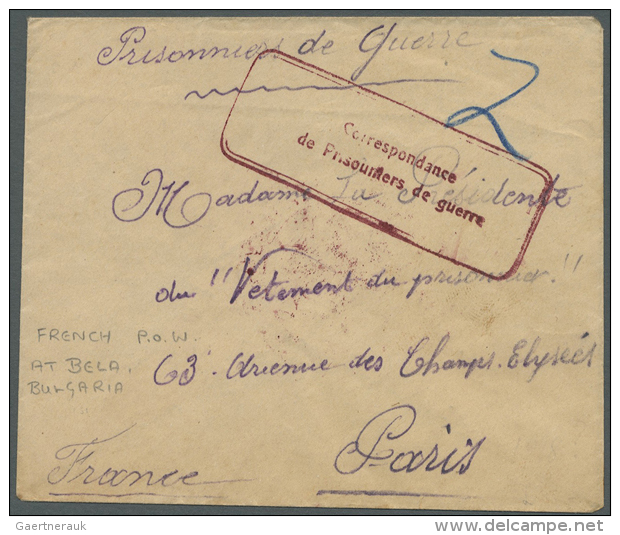 Prisonniers de Guerre
2
Correspondance
de Prisouniers de guerre
Madame La Présidente
du "Vetement du prisonnier."
FRENCH P.O.W.
AT BELA,
BULGARIA
63 avenue des Champs-Elyseés
Paris
France
Gaertnerauk
delcampe.net